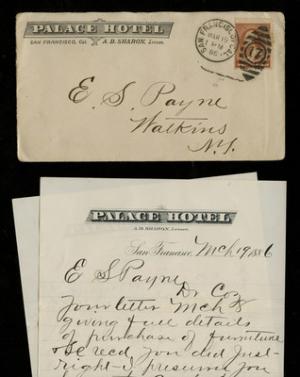 PALACE HOTEL
SAN FRANCISCO, CAL. A. D. SHARON, Lessee.
SAN FRANCISCO, CAL.
MAR 19
1 PM
86
17
E. S. Payne
Watkins
N.Y.
PALACE HOTEL
A. D. SHARON, Lessee.
San Francisco, Mch 19 1886
E S Payne
Dr Coz
Your letter Mch 8
giving full details
of purchase of furniture
&c recd you did just
right I presume you